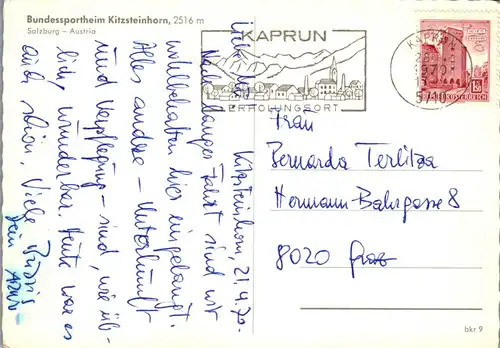 Bundessportheim Kitzsteinhorn, 2516 m
Salzburg – Austria
KAPRUN
ERHOLUNGSORT
KAPRUN
5710
REPUBLIK ÖSTERREICH
Kitzsteinhorn, 21.4.70.
Nach langer Fahrt sind wir
wohlbehalten hier eingelangt.
Alles andere – Unterkunft
und Verpflegung – sind, wie üb-
lich, wunderbar. Heute war es
auch schön. Viele Bussis
Dein
Frau
Bernarda Terlitza
Hermann Bahrgasse 8
8020 Graz
bkr 9